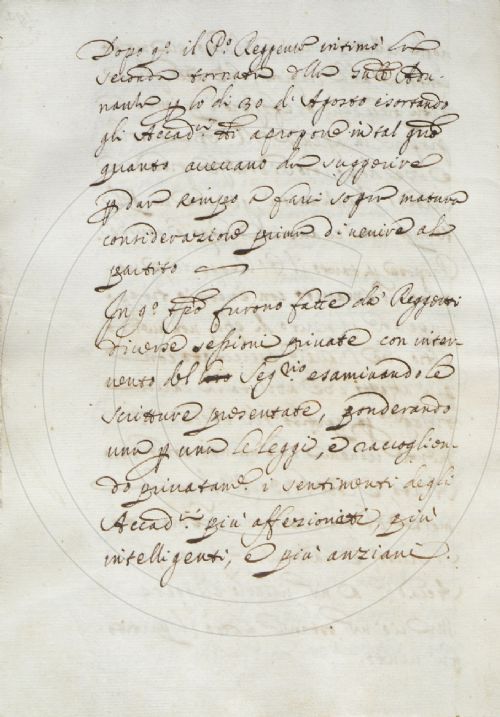 Dopo q.o il P.o Reggente intimò la
seconda tornata della Gnle Adu-
nanza p lo di 30 d'Agosto esortando
gli Accad.ci tti a propone in tal gno
quanto avevano da suggerire
p dar tempo a fare sopra matura
considerazione prima di venire al
partito
In q.o tpo furono fatte da Reggenti
diverse sessioni private con inter-
vento del Seg.rio esaminando le
scritture presentate, ponderando
una p una le leggi, e raccoglien-
do privatam.e i sentimenti degli
Accad.ci più affezionati, più
intelligenti, e più anziani.